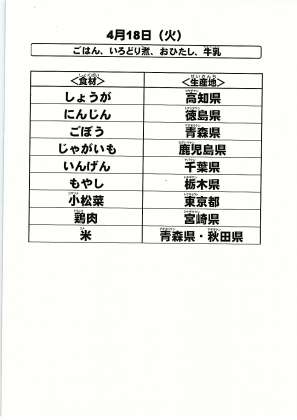 4月18日（火）
ごはん、いろどり煮、おひたし、牛乳
＜食材＞ ＜生産地＞
しょうが 高知県
にんじん 徳島県
ごぼう 青森県
じゃがいも 鹿児島県
いんげん 千葉県
もやし 栃木県
小松菜 東京都
鶏肉 宮崎県
米 青森県・秋田県